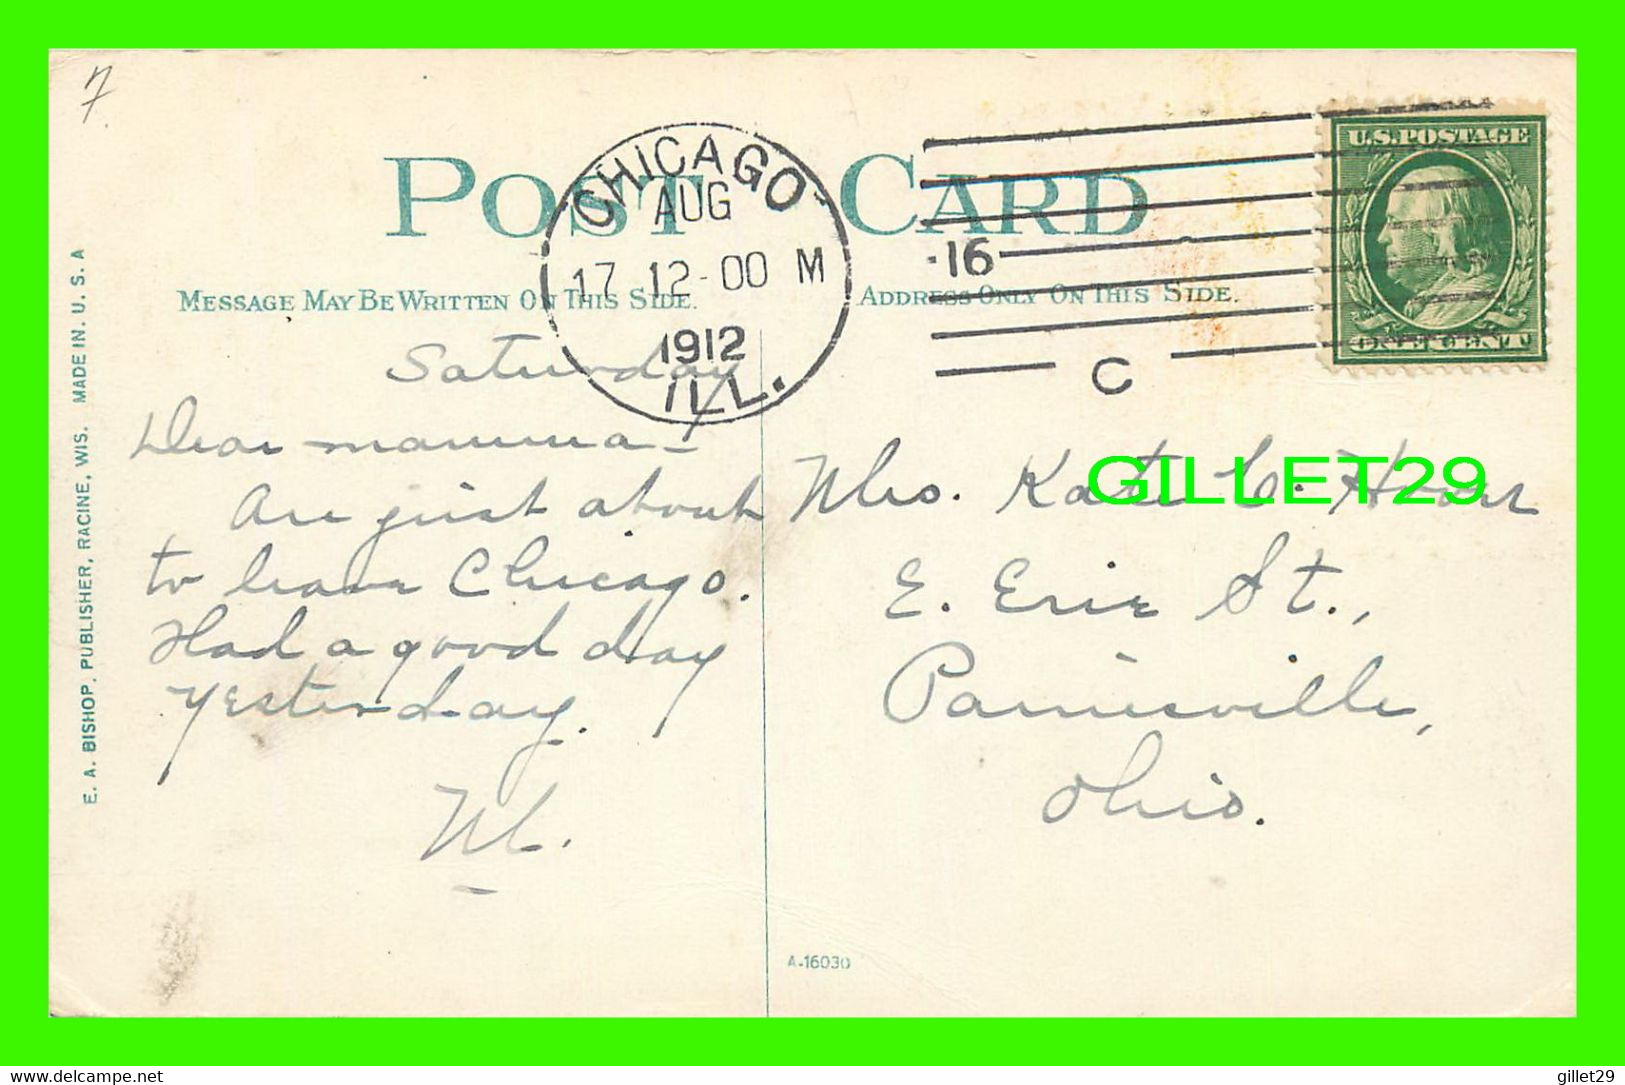 7
POST CARD
CHICAGO
AUG
17 12-00 M
1912
ILL.
16
C
U.S. POSTAGE
ONE CENT
MESSAGE MAY BE WRITTEN ON THIS SIDE.
ADDRESS ONLY ON THIS SIDE.
E. A. BISHOP, PUBLISHER, RACINE, WIS. MADE IN U. S. A
Saturday
Dear mamma -
Are just about
to leave Chicago.
Had a good day
yesterday.
M.
Mrs. Kate C.
E. Erie St.,
Painesville,
Ohio.
GILLET29
A-16030
delcampe.net
gillet29